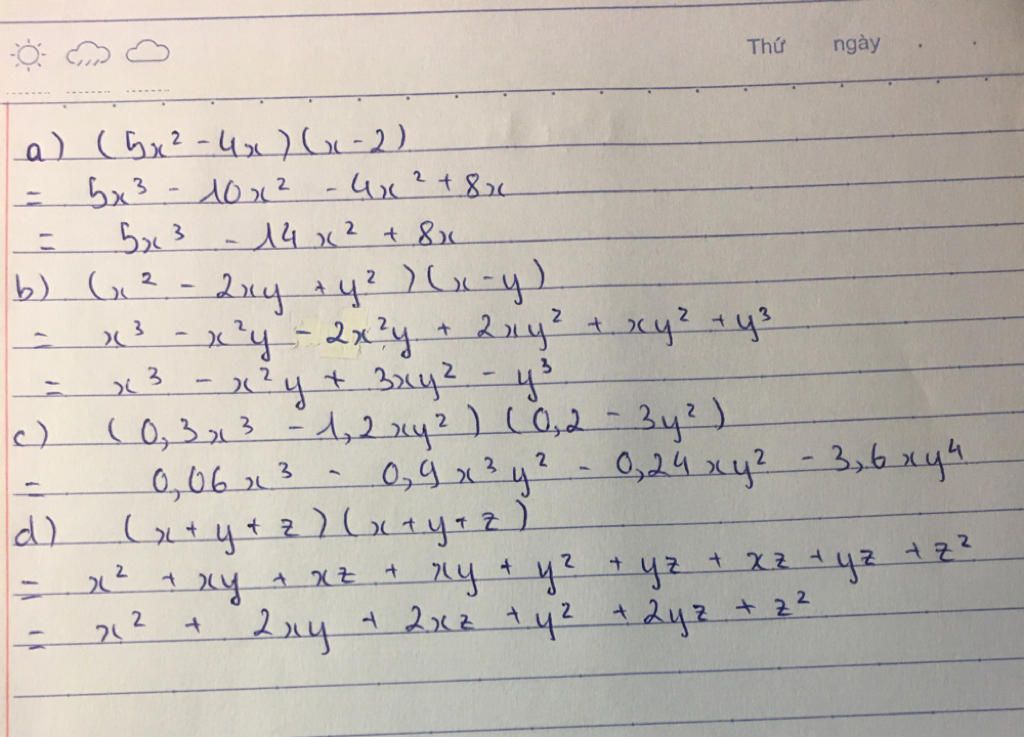 Thứ ngày . .
a) (5x² - 4x)(x - 2)
= 5x³ - 10x² - 4x² + 8x
= 5x³ - 14x² + 8x
b) (x² - 2xy + y²)(x - y)
= x³ - x²y - 2x²y + 2xy² + xy² + y³
= x³ - x²y + 3xy² - y³
c) (0,3x³ - 1,2xy²)(0,2 - 3y²)
= 0,06x³ - 0,9x³y² - 0,24xy² - 3,6xy⁴
d) (x + y + z)(x + y + z)
= x² + xy + xz + xy + y² + yz + xz + yz + z²
= x² + 2xy + 2xz + y² + 2yz + z²